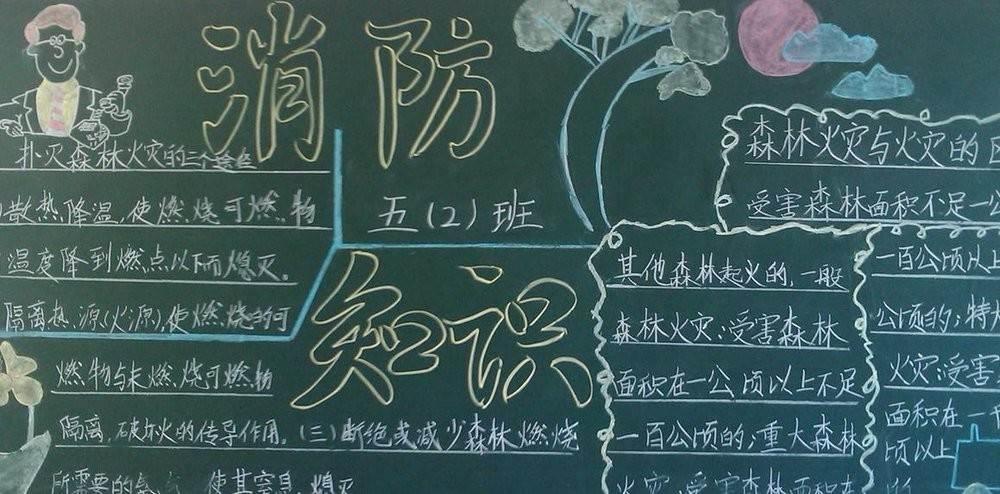 消防
五(2)班
知识
扑灭森林火灾的三个途径
散热降温,使燃烧可燃物
温度降到燃点以下而熄灭。
隔离热源(火源),使燃烧的可
燃物与未燃烧可燃物
隔离,破坏火的传导作用。(三)断绝或减少森林燃烧
所需要的氧气 使其窒息 熄灭
森林火灾与火灾的
受害森林面积不足一公
其他森林起火的,一般
森林火灾:受害森林
面积在一公顷以上不足
一百公顷的;重大森林
火灾:受害森林面积在
一百公顷以上
公顷的;特
火灾:受害
面积在一千
顷以上
的